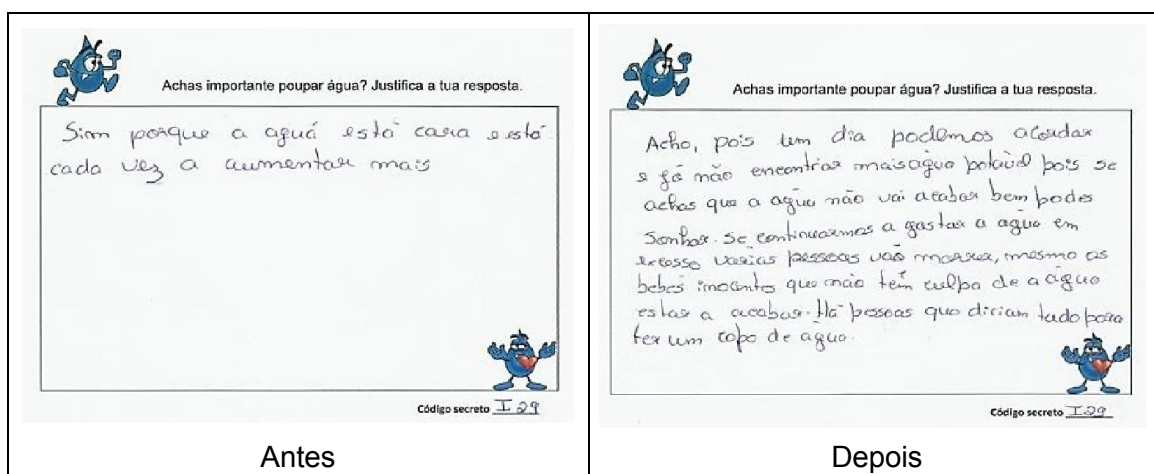 Achas importante poupar água? Justifica a tua resposta.
Sim porque a aguá está cara e está
cada vez a aumentar mais
Código secreto I 29
Antes
Achas importante poupar água? Justifica a tua resposta.
Acho, pois um dia podemos acordar
e já não encontrar mais agua potável pois se
achas que a agua não vai acabar bem podes
sonhar. Se continuarmos a gastar a agua em
excesso varias pessoas vão morrer, mesmo os
bebés inocentes que não têm culpa de a água
estar a acabar. Há pessoas que diriam tudo para
ter um copo de agua.
Código secreto I29
Depois